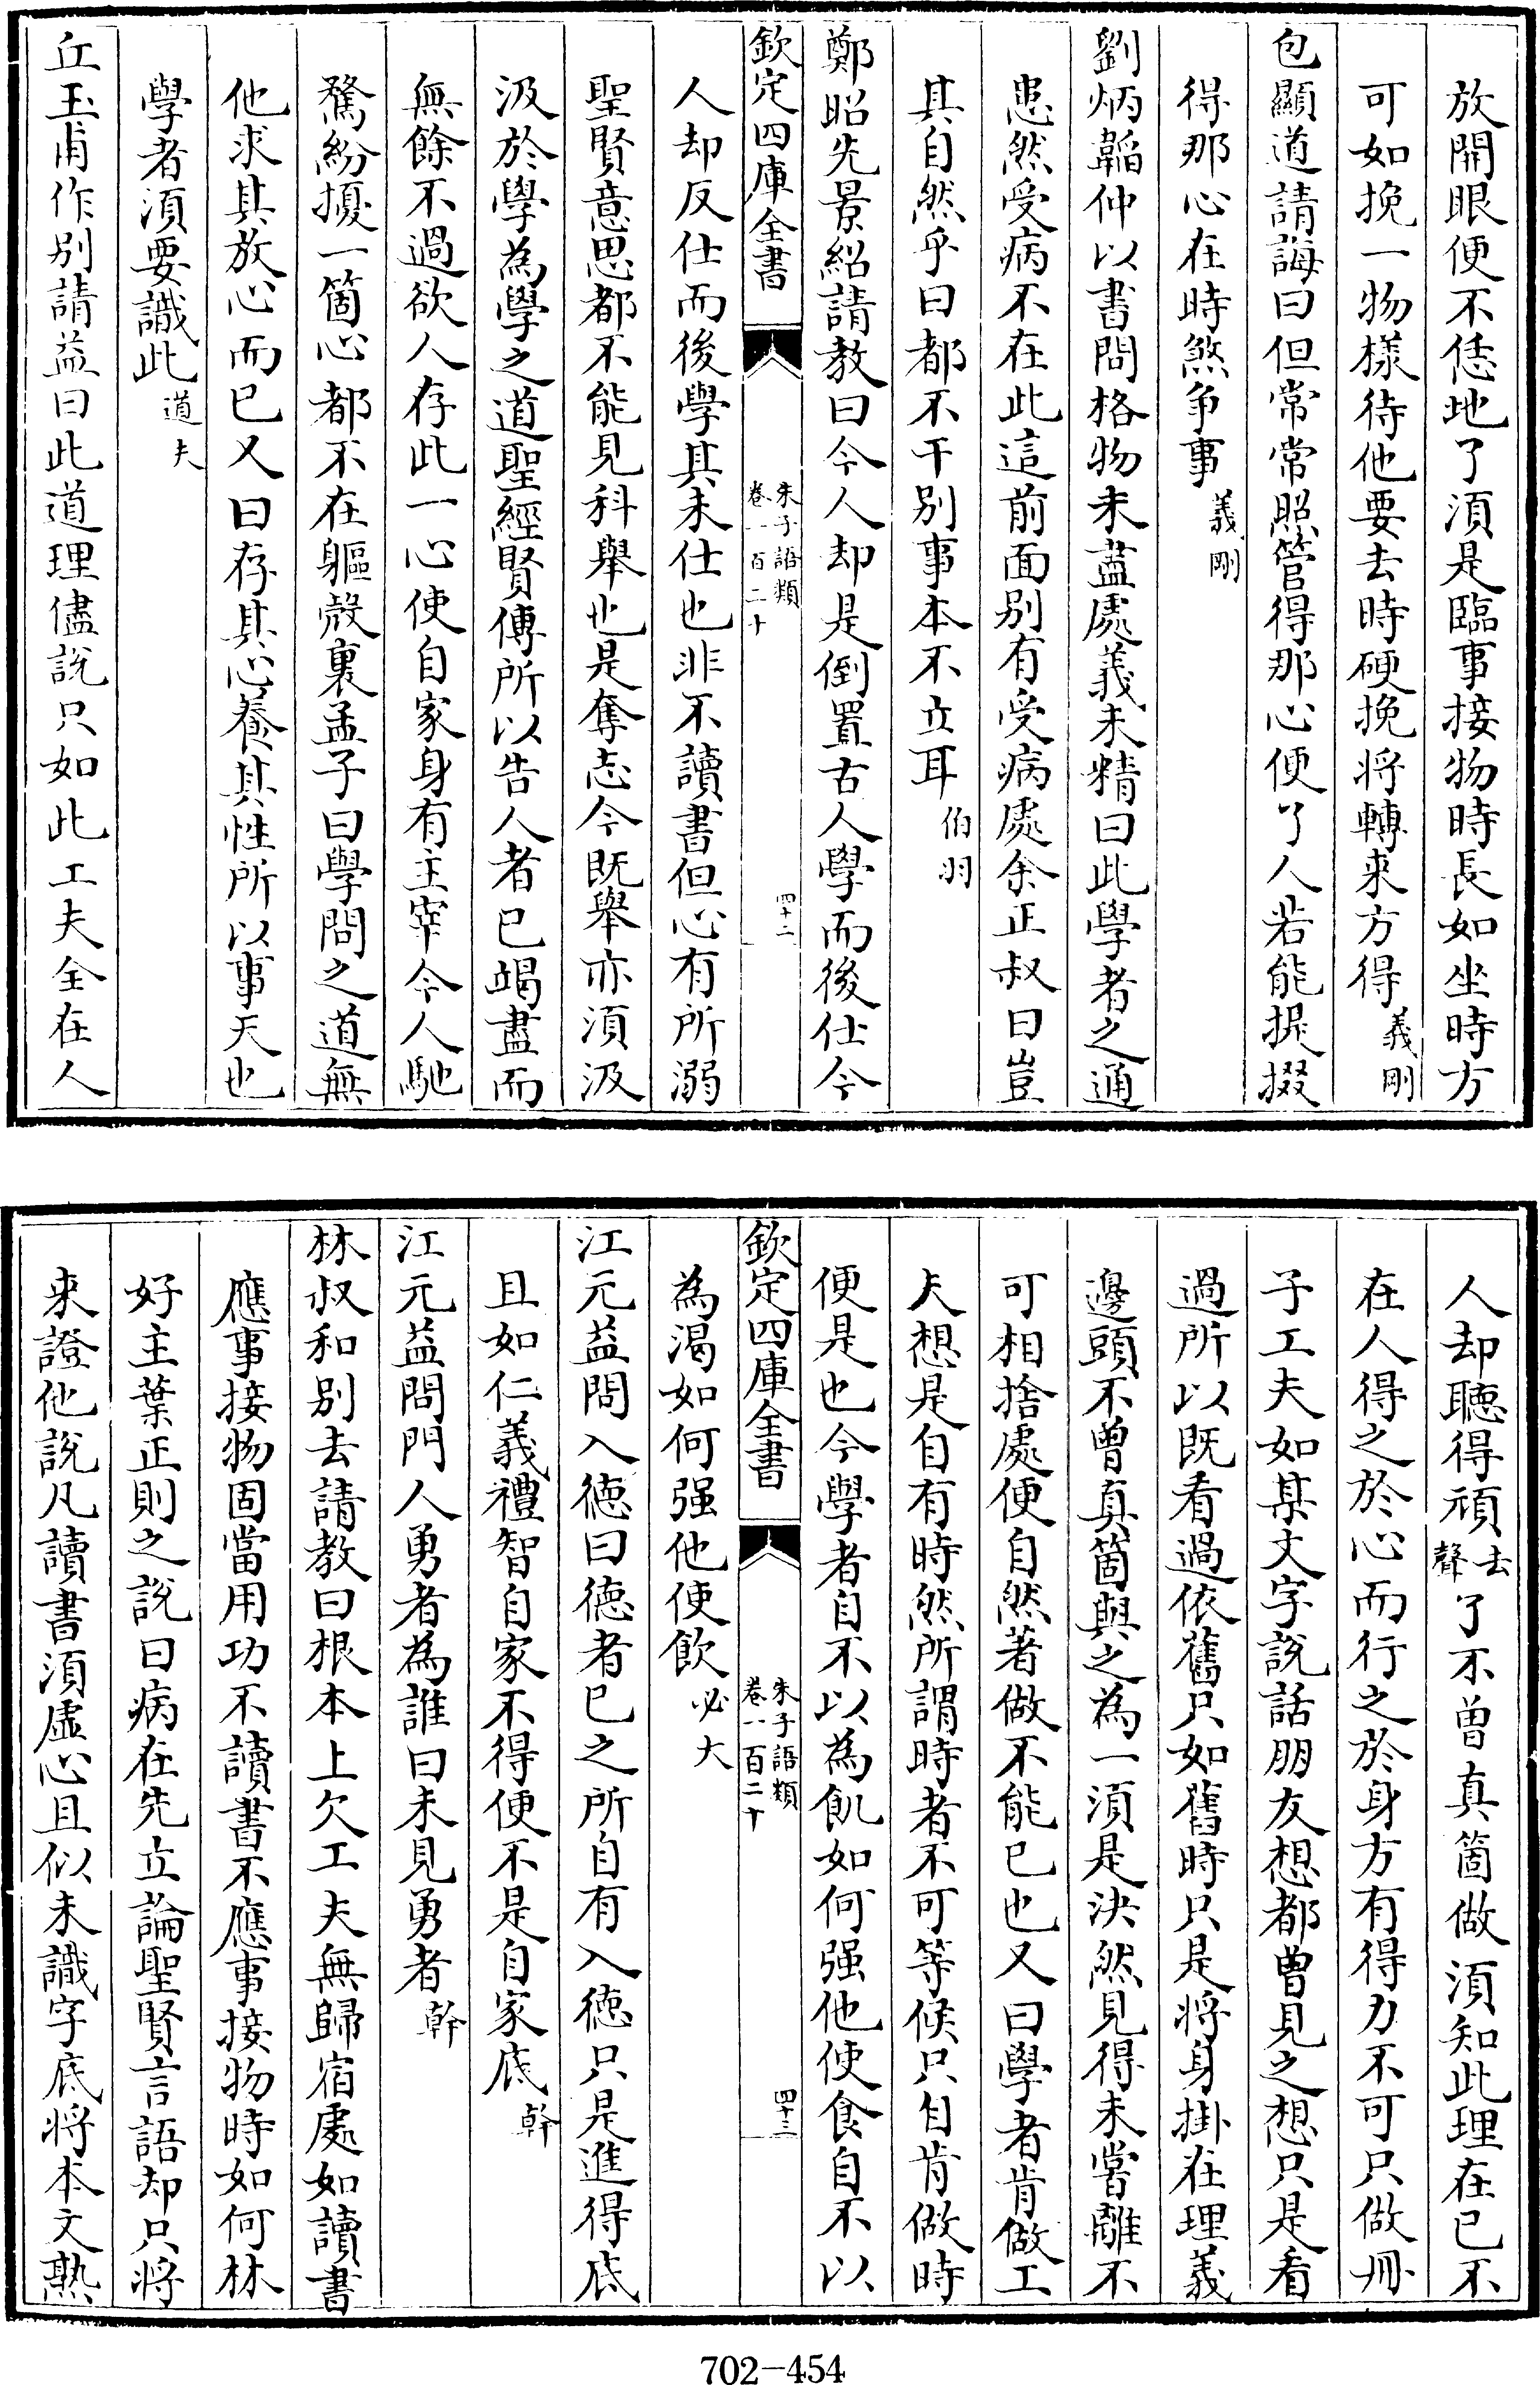 放開眼便不恁地了須是臨事接物時長如坐時方
可如挽一物樣待他要去時硬挽將轉來方得義剛
包顯道請誨曰但常常照管得那心便了人若能提掇
得那心在時煞爭事義剛
劉炳韜仲以書問格物未盡處義未精曰此學者之通
患然受病不在此這前面别有受病處余正叔曰豈
其自然乎曰都不干别事本不立耳伯羽
鄭昭先景紹請教曰今人却是倒置古人學而後仕今
欽定四庫全書
朱子語類
卷一百二十
四十二
人却反仕而後學其未仕也非不讀書但心有所溺
聖賢意思都不能見科舉也是奪志今既舉亦須汲
汲於學為學之道聖經賢傳所以告人者已竭盡而
無餘不過欲人存此一心使自家身有主宰今人馳
騖紛擾一箇心都不在軀殻裏孟子曰學問之道無
他求其放心而已又曰存其心養其性所以事天也
學者須要識此道夫
丘玉甫作别請益曰此道理儘說只如此工夫全在人
人却聽得頑去聲了不曽真箇做須知此理在已不
在人得之於心而行之於身方有得力不可只做冊
子工夫如某文字說話朋友想都曽見之想只是看
過所以既看過依舊只如舊時只是將身掛在理義
邊頭不曽真箇與之為一須是決然見得未嘗離不
可相捨處便自然著做不能已也又曰學者肯做工
夫想是自有時然所謂時者不可等候只自肯做時
便是也今學者自不以為飢如何强他使食自不以
欽定四庫全書
朱子語類
卷一百二十
四十三
為渴如何强他使飲必大
江元益問入徳曰徳者已之所自有入徳只是進得底
且如仁義禮智自家不得便不是自家底幹
江元益問門人勇者為誰曰未見勇者幹
林叔和别去請教曰根本上欠工夫無歸宿處如讀書
應事接物固當用功不讀書不應事接物時如何林
好主葉正則之說曰病在先立論聖賢言語却只將
來證他說凡讀書須虛心且似未識字底將本文熟
702-454